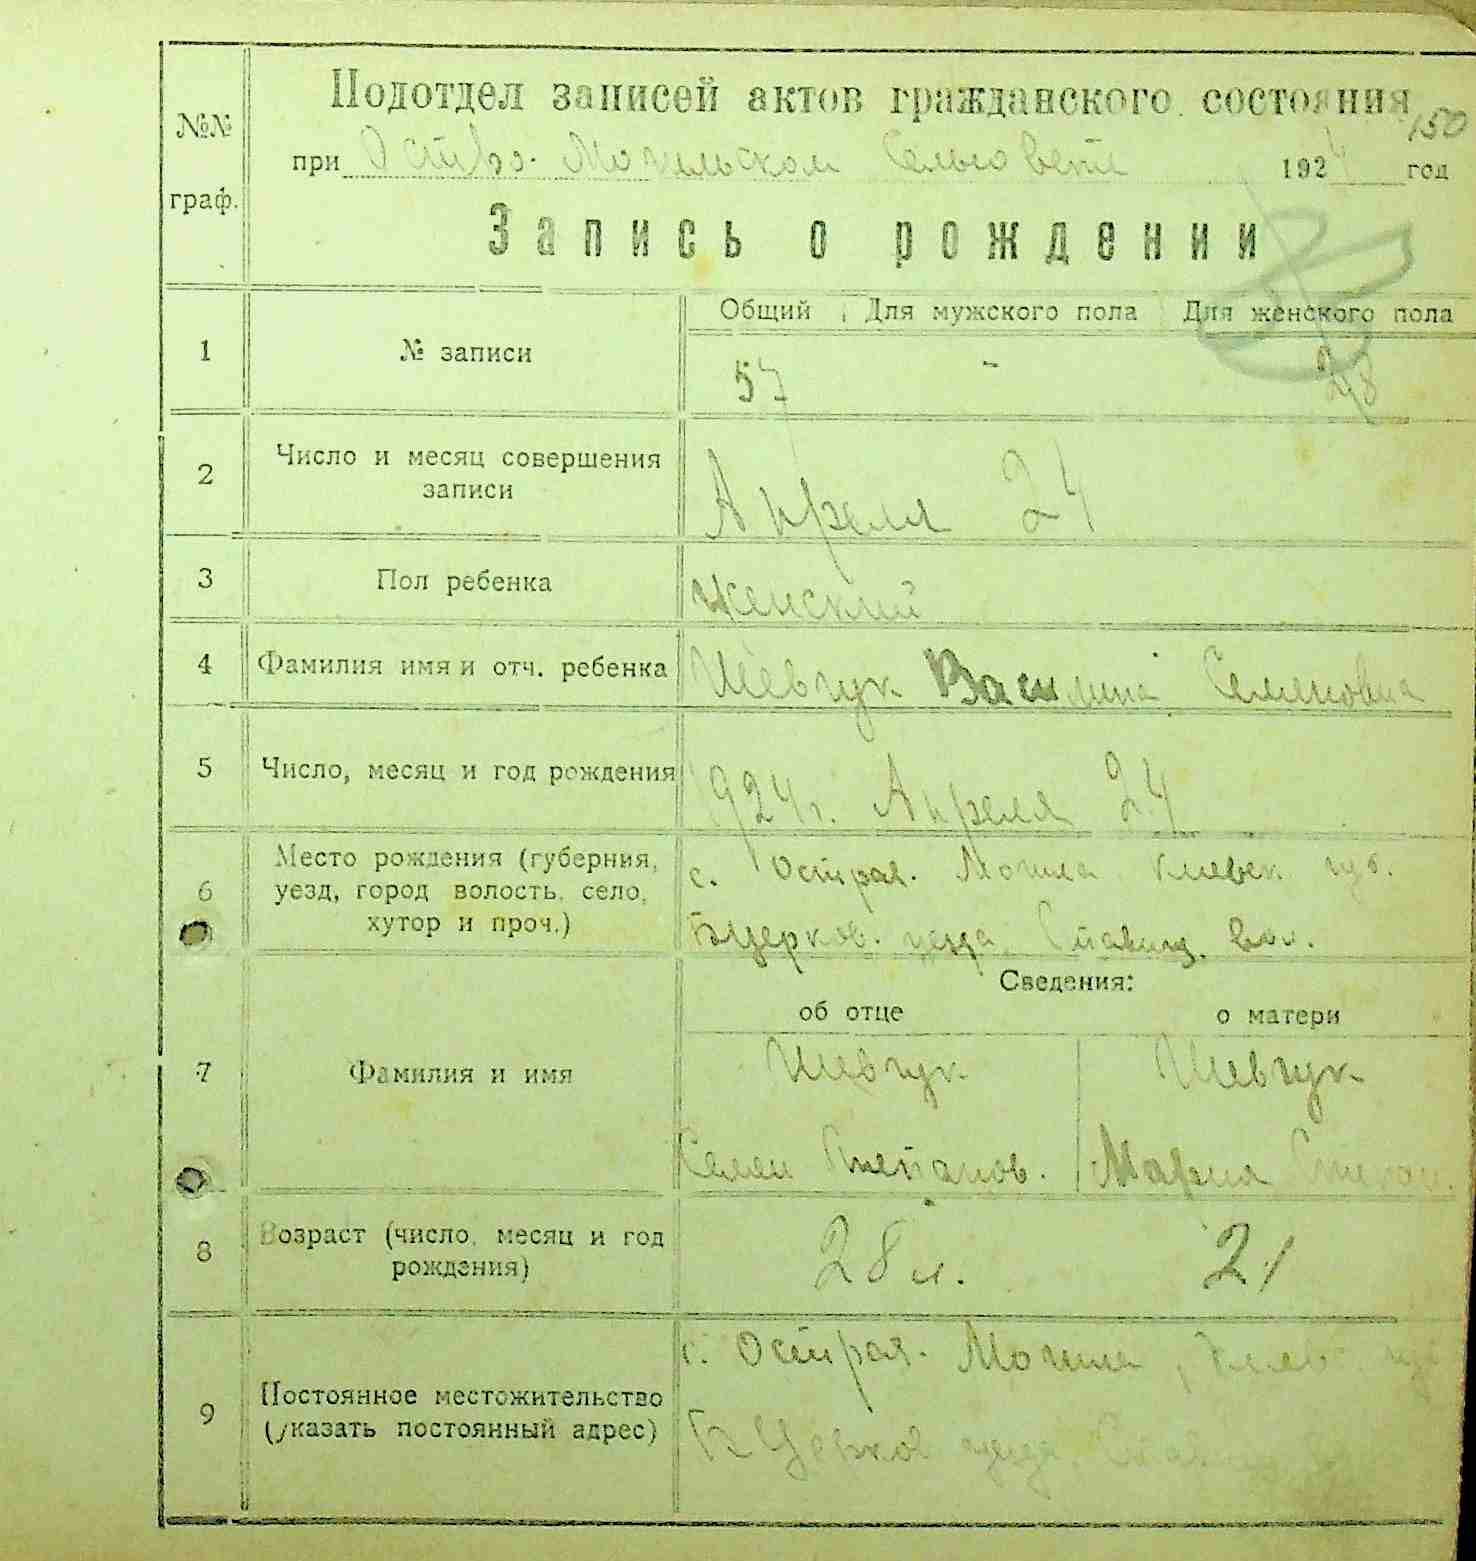 Подотдел записей актов гражданского состояния
150
№№ граф.
при Остро-Могильском Сельсовете 1924 год
Запись о рождении
Общий Для мужского пола Для женского пола
1 № записи 57 - 28
2 Число и месяц совершения
записи
Апреля 24
3 Пол ребенка женский
4 Фамилия имя и отч. ребенка Шевчук Василина Семеновна
5 Число, месяц и год рождения 1924 г. Апреля 24
6 Место рождения (губерния,
уезд, город волость, село,
хутор и проч.)
с. Острая. Могила, Киевск губ.
Бцерков. уезда, Ставищ. вол.
Сведения:
об отце о матери
7 Фамилия и имя
Шевчук Шевчук
Семен Степанов. Мария
8 Возраст (число, месяц и год
рождения)
28 л. 21
9 Постоянное местожительство
(указать постоянный адрес)
с. Острая. Могила, Киев
Б Церков уезд,